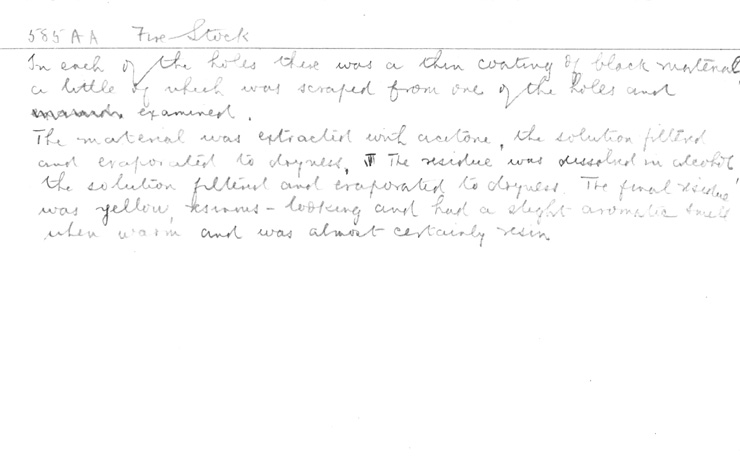 585 AA Fire Stock
In each of the holes there was a thin coating of black material,
a little of which was scraped from one of the holes and
examined.
The material was extracted with acetone, the solution filtered
and evaporated to dryness. The residue was dissolved in alcohol,
the solution filtered and evaporated to dryness. The final residue
was yellow, resinous-looking and had a slight aromatic smell
when warm and was almost certainly resin